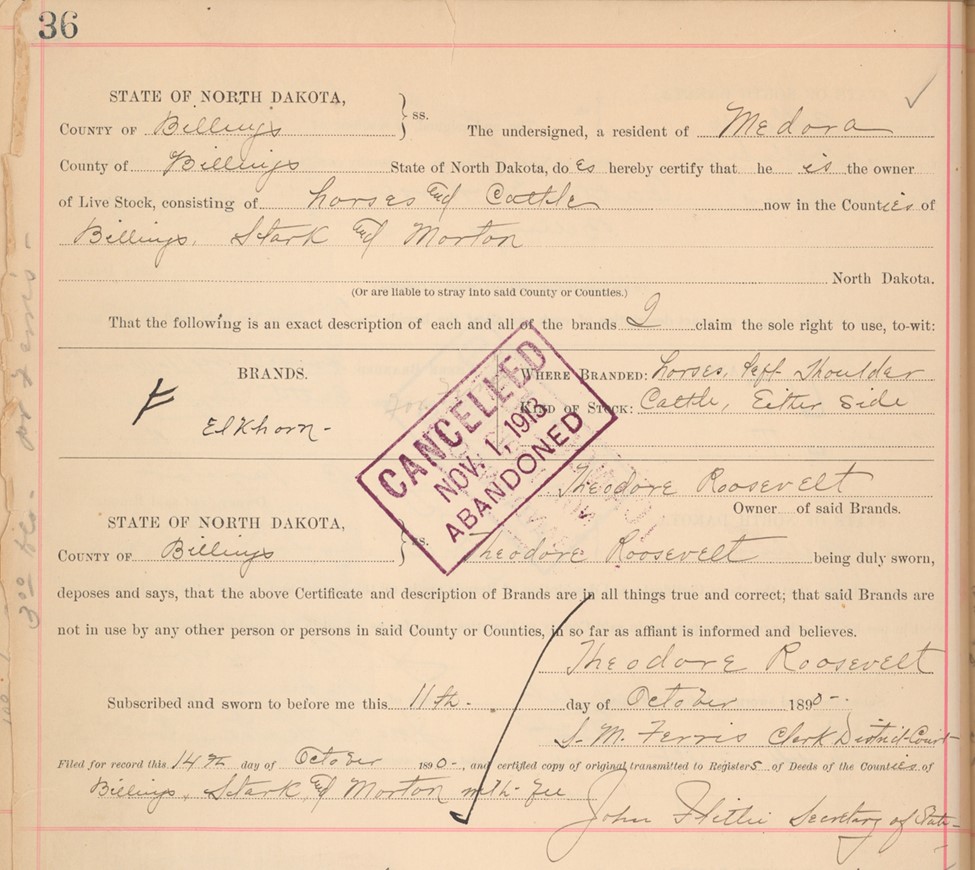 36
STATE OF NORTH DAKOTA,
COUNTY OF Billings ss. The undersigned, a resident of Medora
County of Billings State of North Dakota, do es hereby certify that he is the owner
of Live Stock, consisting of horses and Cattle now in the Counties of
Billings, Stark and Morton
North Dakota.
(Or are liable to stray into said County or Counties.)
That the following is an exact description of each and all of the brands I claim the sole right to use, to-wit:
BRANDS. WHERE BRANDED: horses, left Shoulder
KIND OF STOCK: Cattle, Either side
ElKhorn-
CANCELLED
NOV. 1, 1913
ABANDONED
Theodore Roosevelt
Owner of said Brands.
STATE OF NORTH DAKOTA,
COUNTY OF Billings ss. Theodore Roosevelt being duly sworn,
deposes and says, that the above Certificate and description of Brands are in all things true and correct; that said Brands are
not in use by any other person or persons in said County or Counties, in so far as affiant is informed and believes.
Theodore Roosevelt
Subscribed and sworn to before me this 11th. day of October 1890-
S. M. Ferris Clerk District Court
Filed for record this 14th day of October 1890-, and certified copy of original transmitted to Registers of Deeds of the Counties of
Billings, Stark, and Morton with fee
John Flittie Secretary of State-